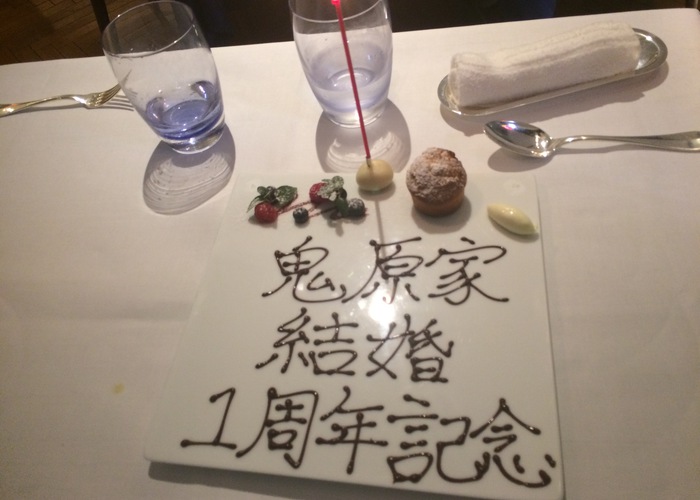 鬼原家
結婚
1周年記念